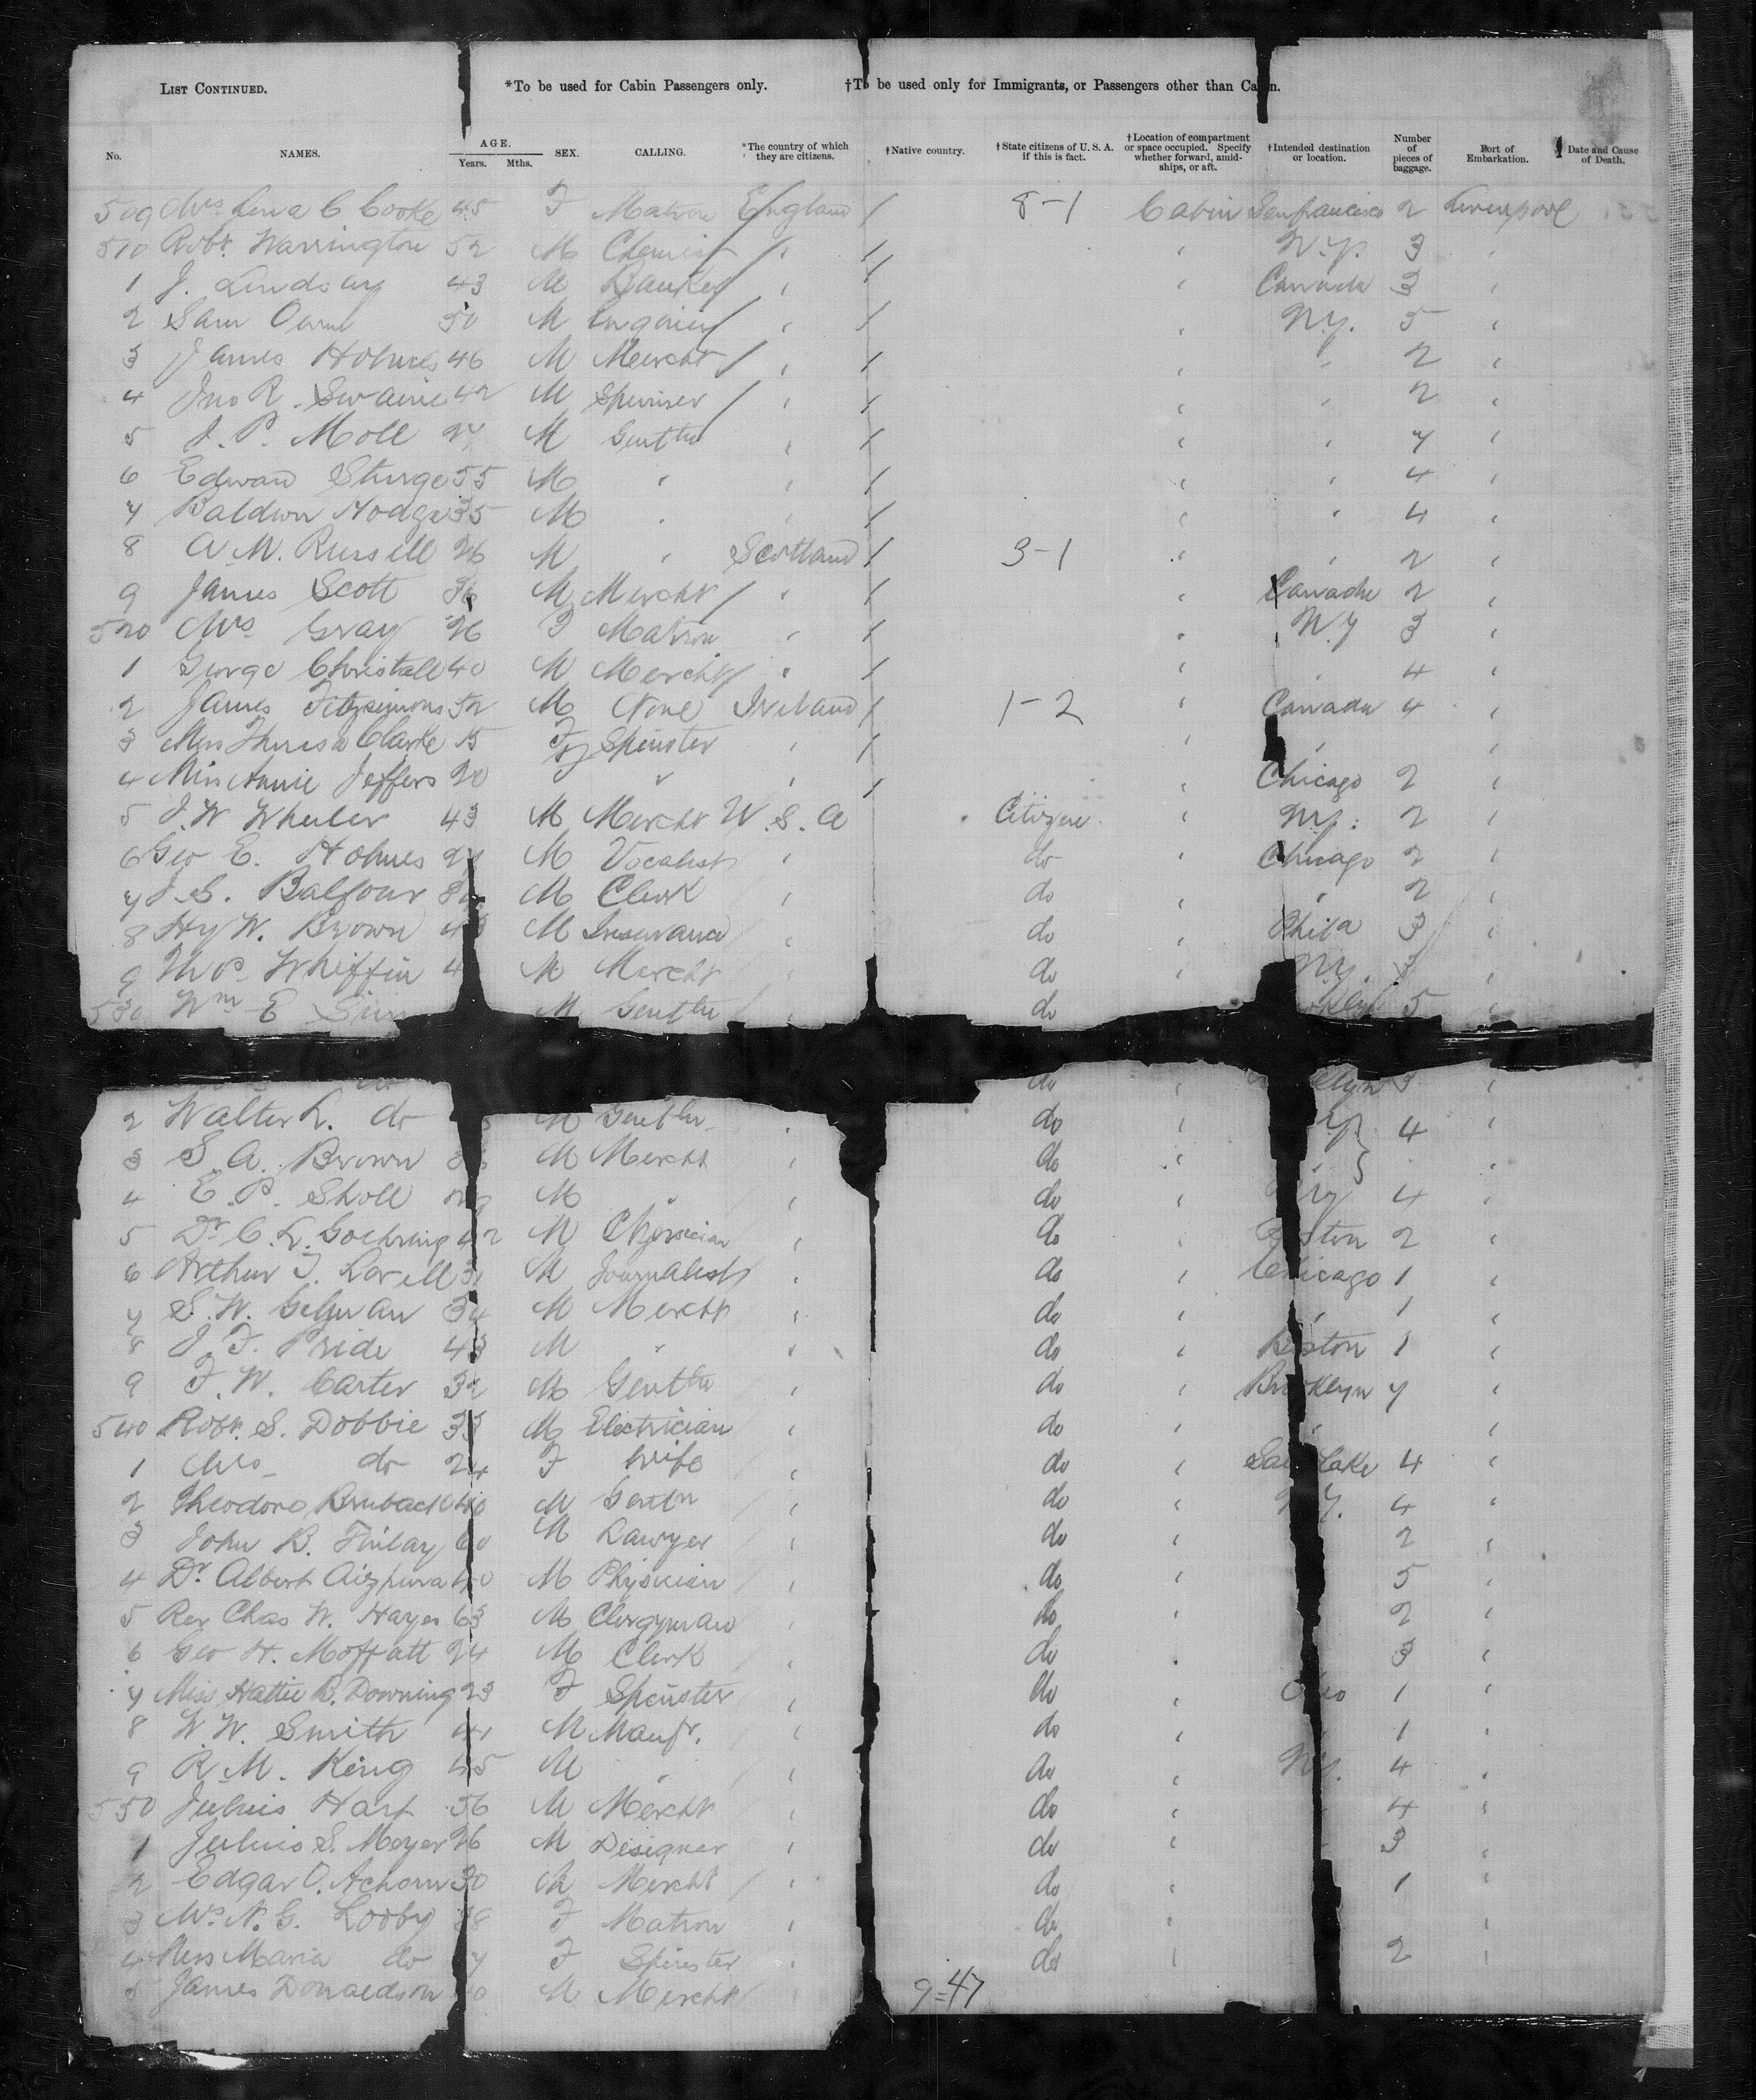 LIST CONTINUED. *To be used for Cabin Passengers only. †To be used only for Immigrants, or Passengers other than Cabin.
No. NAMES. AGE. Years. Mths. SEX. CALLING. *The country of which they are citizens. †Native country. †State citizens of U. S. A. if this is fact. †Location of compartment or space occupied. Specify whether forward, amidships, or aft. †Intended destination or location. Number of pieces of baggage. Port of Embarkation. Date and Cause of Death.
509 Mrs Lena C Cooke 45 F Matron England / 8-1 Cabin Sanfrancisco 2 Liverpool
510 Robt. Warrington 52 M Chemist / " / " N.Y. 3 "
1 J. Lindsay 43 M Banker / " / " Canada 3 "
2 Sam 50 M Engineer / " / " N.Y. 5 "
3 James Holmes 46 M Mercht / " / " " 2 "
4 Jno R. Swaine 42 M Spinner / " / " " 2 "
5 J. P. Moll 27 M Gentln " / " " 7 "
6 Edward Sturge 55 M " " / " " 4 "
7 Baldwin Hodge 35 M " " / " " 4 "
8 A. M. Russell 26 M " Scotland / 3-1 " " 2 "
9 James Scott 36 M Mercht / " / " Canada 2 "
520 Mrs Gray 26 F Matron " / " N.Y 3 "
1 George Christall 40 M Mercht / " / " " 4 "
2 James Fitzsimons 52 M None Ireland / 1-2 " Canada 4 "
3 Miss Theresa Clarke 15 F Spinster " / " " "
4 Miss Annie Jeffers 20 F " " / " Chicago 2 "
5 J. W Wheeler 43 M Mercht U.S.A Citizen " N.Y. 2 "
6 Geo E. Holmes 27 M Vocalist " do " Chicago 2 "
7 J. S. Balfour M Clerk " do " " 2 "
8 Hy W. Brown M Insurance " do " Phila 3 "
9 Thos. Whiffin 4 M Mercht " do " N.Y. "
530 Wm E M Gentln " do 5 "
do do " 3 "
2 Walter L. do M Gentln " do " 4 "
3 S. A. Brown M Mercht " do " " "
4 E. P. Sholl M " " do " 4 "
5 Dr C. L. Goehring 42 M Physician " do " Boston 2 "
6 Arthur J. Lovell 31 M Journalist " do " Chicago 1 "
7 S. W. 34 M Mercht " do " " 1 "
8 J. F. Pride 43 M " " do " Boston 1 "
9 F. W. Carter 32 M Gentln " do " Brooklyn 7 "
540 Robt. S. Dobbie 33 M Electrician " do " " "
1 Mrs do 24 F Wife " do " Salt Lake 4 "
2 Theodore Bruback 40 M Gentn " do " N.Y. 4 "
3 John B. Finlay 60 M Lawyer do " 2 "
4 Dr Albert Aizpura 40 M Physician / " do " 5 "
5 Rev Chas W. Hayes 63 M Clergyman " do " 2 "
6 Geo H. Moffatt 24 M Clerk " do " 3 "
7 Miss Hattie B. Downing 23 F Spinster " do " Ohio 1 "
8 W. W. Smith 41 M Manfr. " do " 1 "
9 R. M. King 45 M " " do " N.Y. 4 "
550 Julius 56 M Mercht " do " 4 "
1 Julius S. Meyer 26 M Designer " do " 3 "
2 Edgar O. Achorn 30 M Mercht / " do " 1 "
3 Mrs N. G. Looby 38 F Matron " do " "
4 Miss Maria do 7 F Spinster " do " 2 "
5 James Donaldson M Mercht
9=47